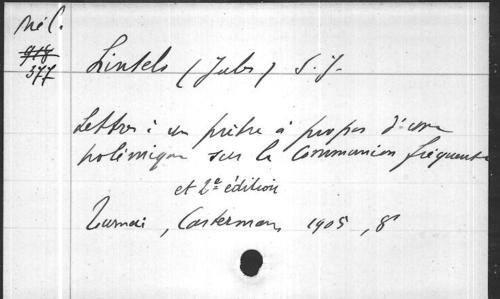 Mél.
918
377
Lintels (Jules) S. J.
Lettres à un prêtre à propos d'une
polémique sur la Communion fréquente
et 2e édition
Tournai, Casterman, 1905, 8°